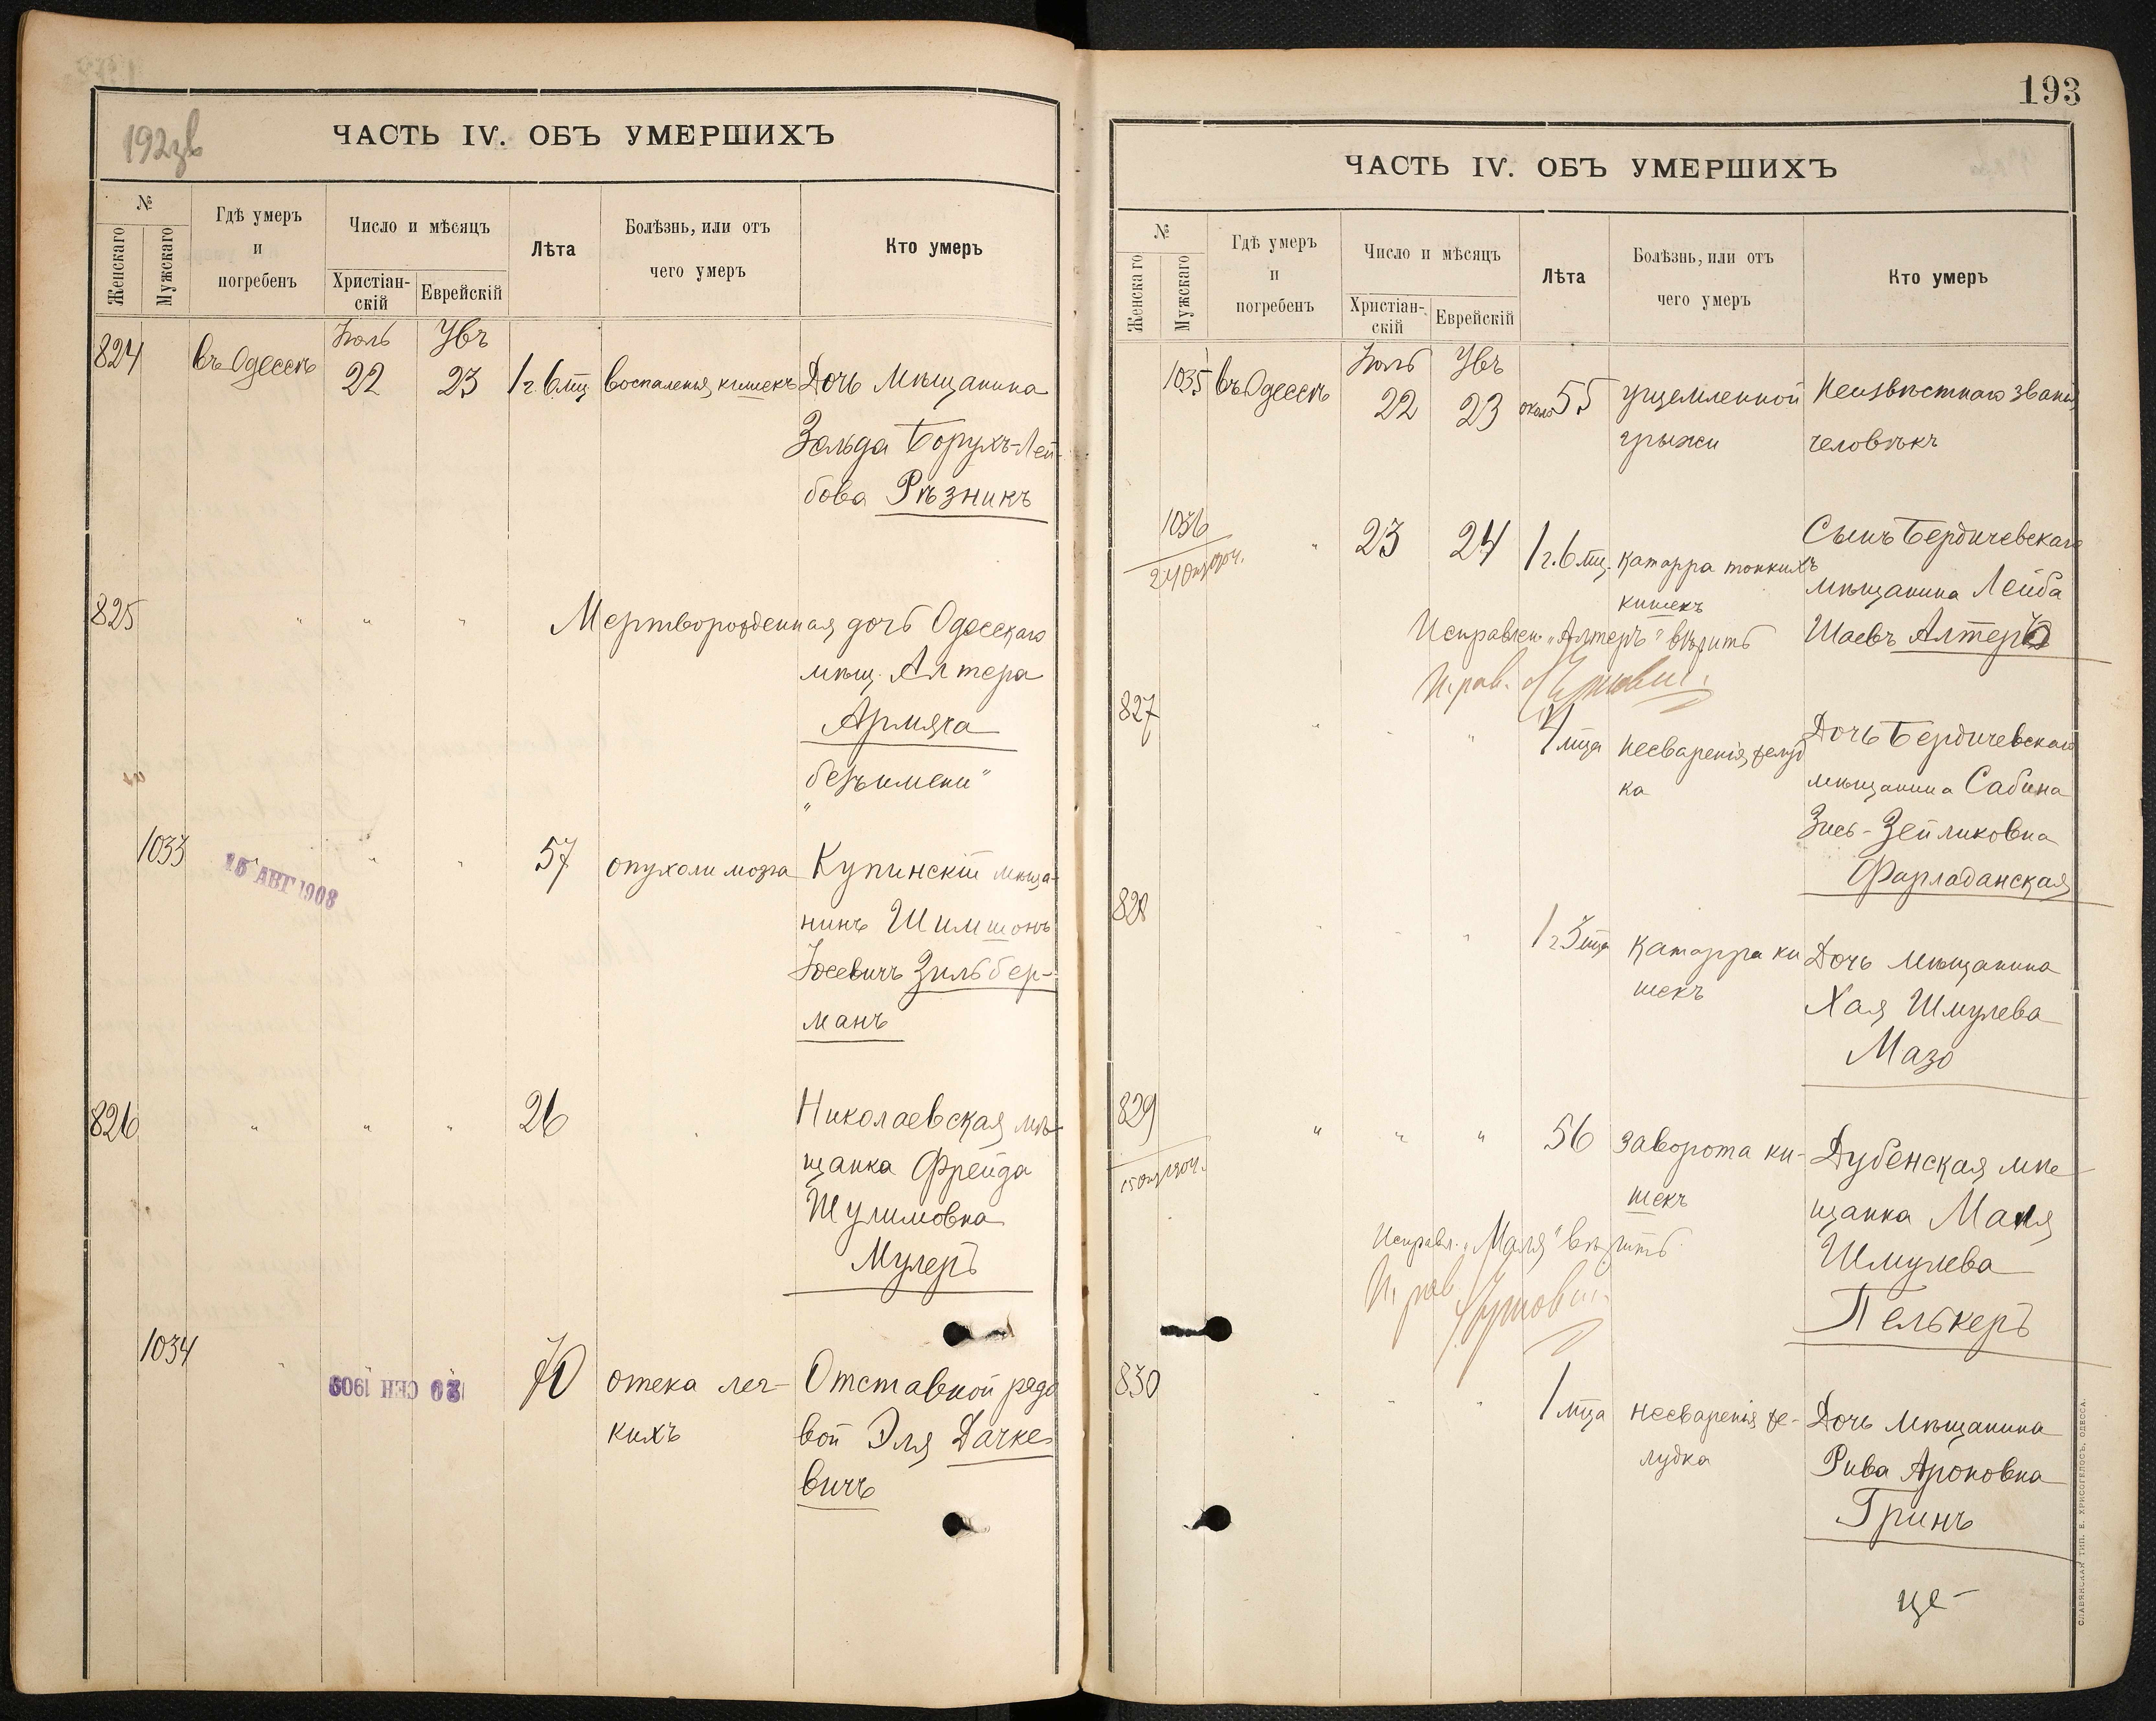 192зв
ЧАСТЬ IV. ОБЪ УМЕРШИХЪ
№
Женскаго
Мужскаго
Гдѣ умеръ
и
погребенъ
Число и мѣсяцъ
Христіан-
скій
Еврейскій
Лѣта
Болѣзнь, или отъ
чего умеръ
Кто умеръ
824
въ Одессѣ
Іюль
22
23
1 г 6 мц
воспаленія кишекъ
Дочь Мѣщанина
Зельда Борухъ-Лей-
бова Рѣзникъ
825
" " "
Мертворожденная дочь Одесскаго
мѣщ. Алтера
Армяча
безъ имени"
1033
16 АВГ 1908
" "
57
опухоли мозга
Купинскій мѣща-
нинъ Шимшонъ
Іосевичъ Зильбер-
манъ
826
" " "
26
"
Николаевская мѣ-
щанка Фрейда
Шулимовна
Мулеръ
1034
"
20 СЕН 1909
70
отека лег-
кихъ
Отставной рядо
вой Эля Дачке
вичъ
193
ЧАСТЬ IV. ОБЪ УМЕРШИХЪ
№
Женскаго
Мужскаго
Гдѣ умеръ
и
погребенъ
Число и мѣсяцъ
Христіан-
скій
Еврейскій
Лѣта
Болѣзнь, или отъ
чего умеръ
Кто умеръ
1035
въ Одессѣ
Іюль
22
23
около 55
ущемленной
грыжи
Неизвѣстнаго званія
человѣкъ
1036
"
23
24
1 г. 6 мц.
катарра тонкихъ
кишекъ
Сынъ Бердичевскаго
мѣщанина Лейба
Шаевъ Алтеръ
Исправлен. „Алтеръ" вѣрить
827
" " "
4 мца
несваренія желуд
ка
Дочь Бердичевскаго
мѣщанина Сабина
Зись-Зейликовна
Фарладанская
828
" " "
1 г 3 мца
катарра ки
шекъ
Дочь мѣщанина
Хая Шмулева
Мазо
829
" " "
56
заворота ки-
шекъ
Дубенская мѣ
щанка Маля
Шмулева
Пелькеръ
Исправл. „Маля" вѣрить
830
" "
1 мца
несваренія же-
лудка
Дочь мѣщанина
Рива Ароновна
Гринъ
це-
СЛАВЯНСКАЯ ТИП. Е. ХРИСОГЕЛОСЪ, ОДЕССА.